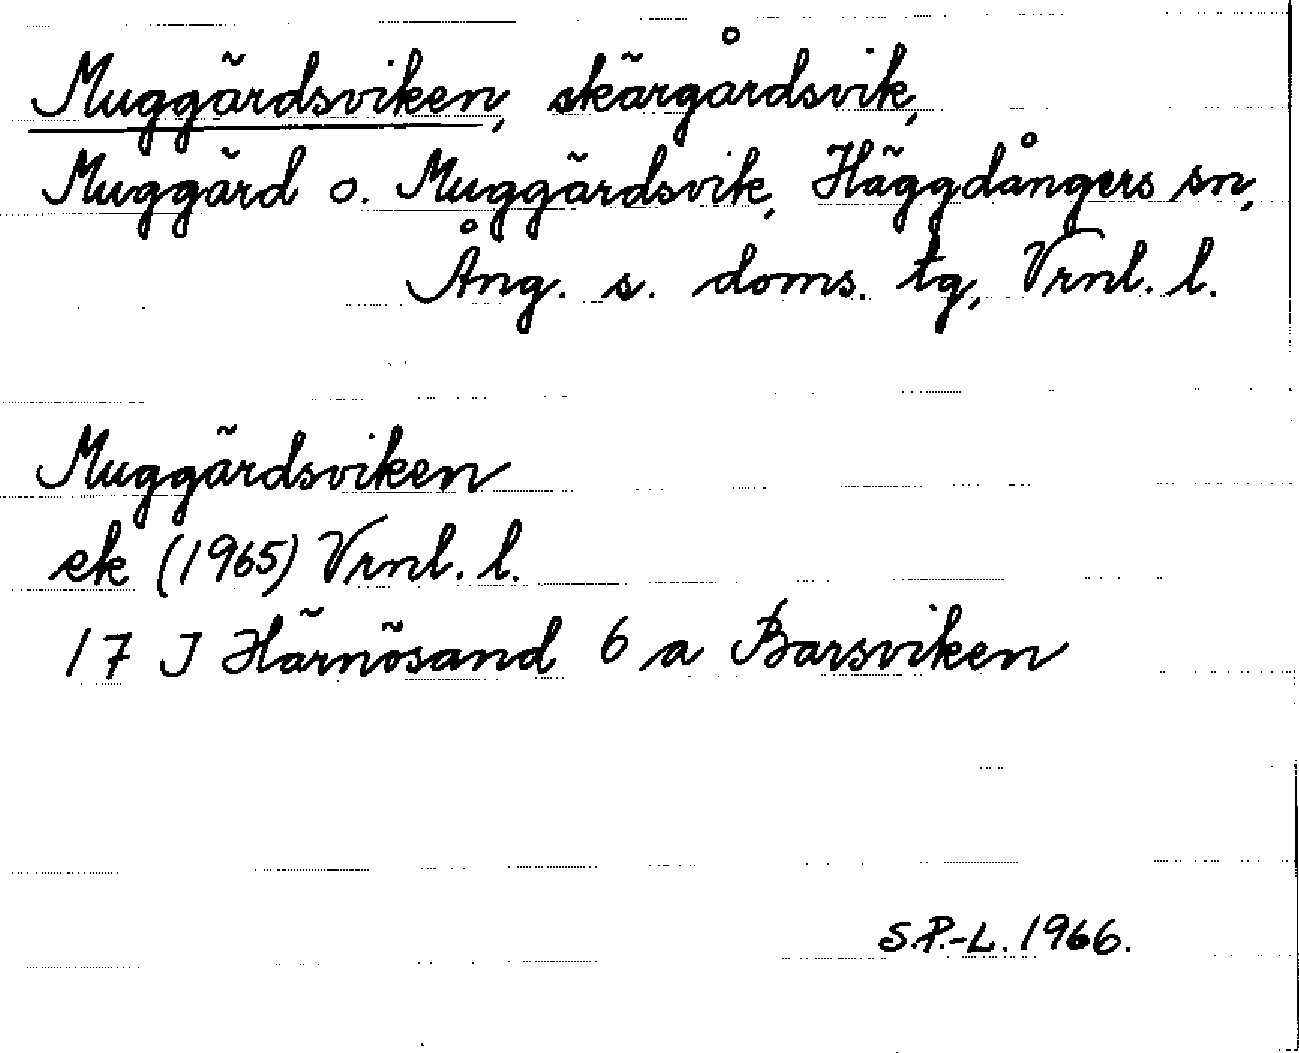 Muggärdsviken, skärgårdsvik,
Muggärd o. Muggärdsvik, Häggdångers sn,
Ång. s. doms. tg, Vrnl. l.
Muggärdsviken
ek (1965) Vrnl. l.
17 J Härnösand 6 a Barsviken
S.P.-L. 1966.